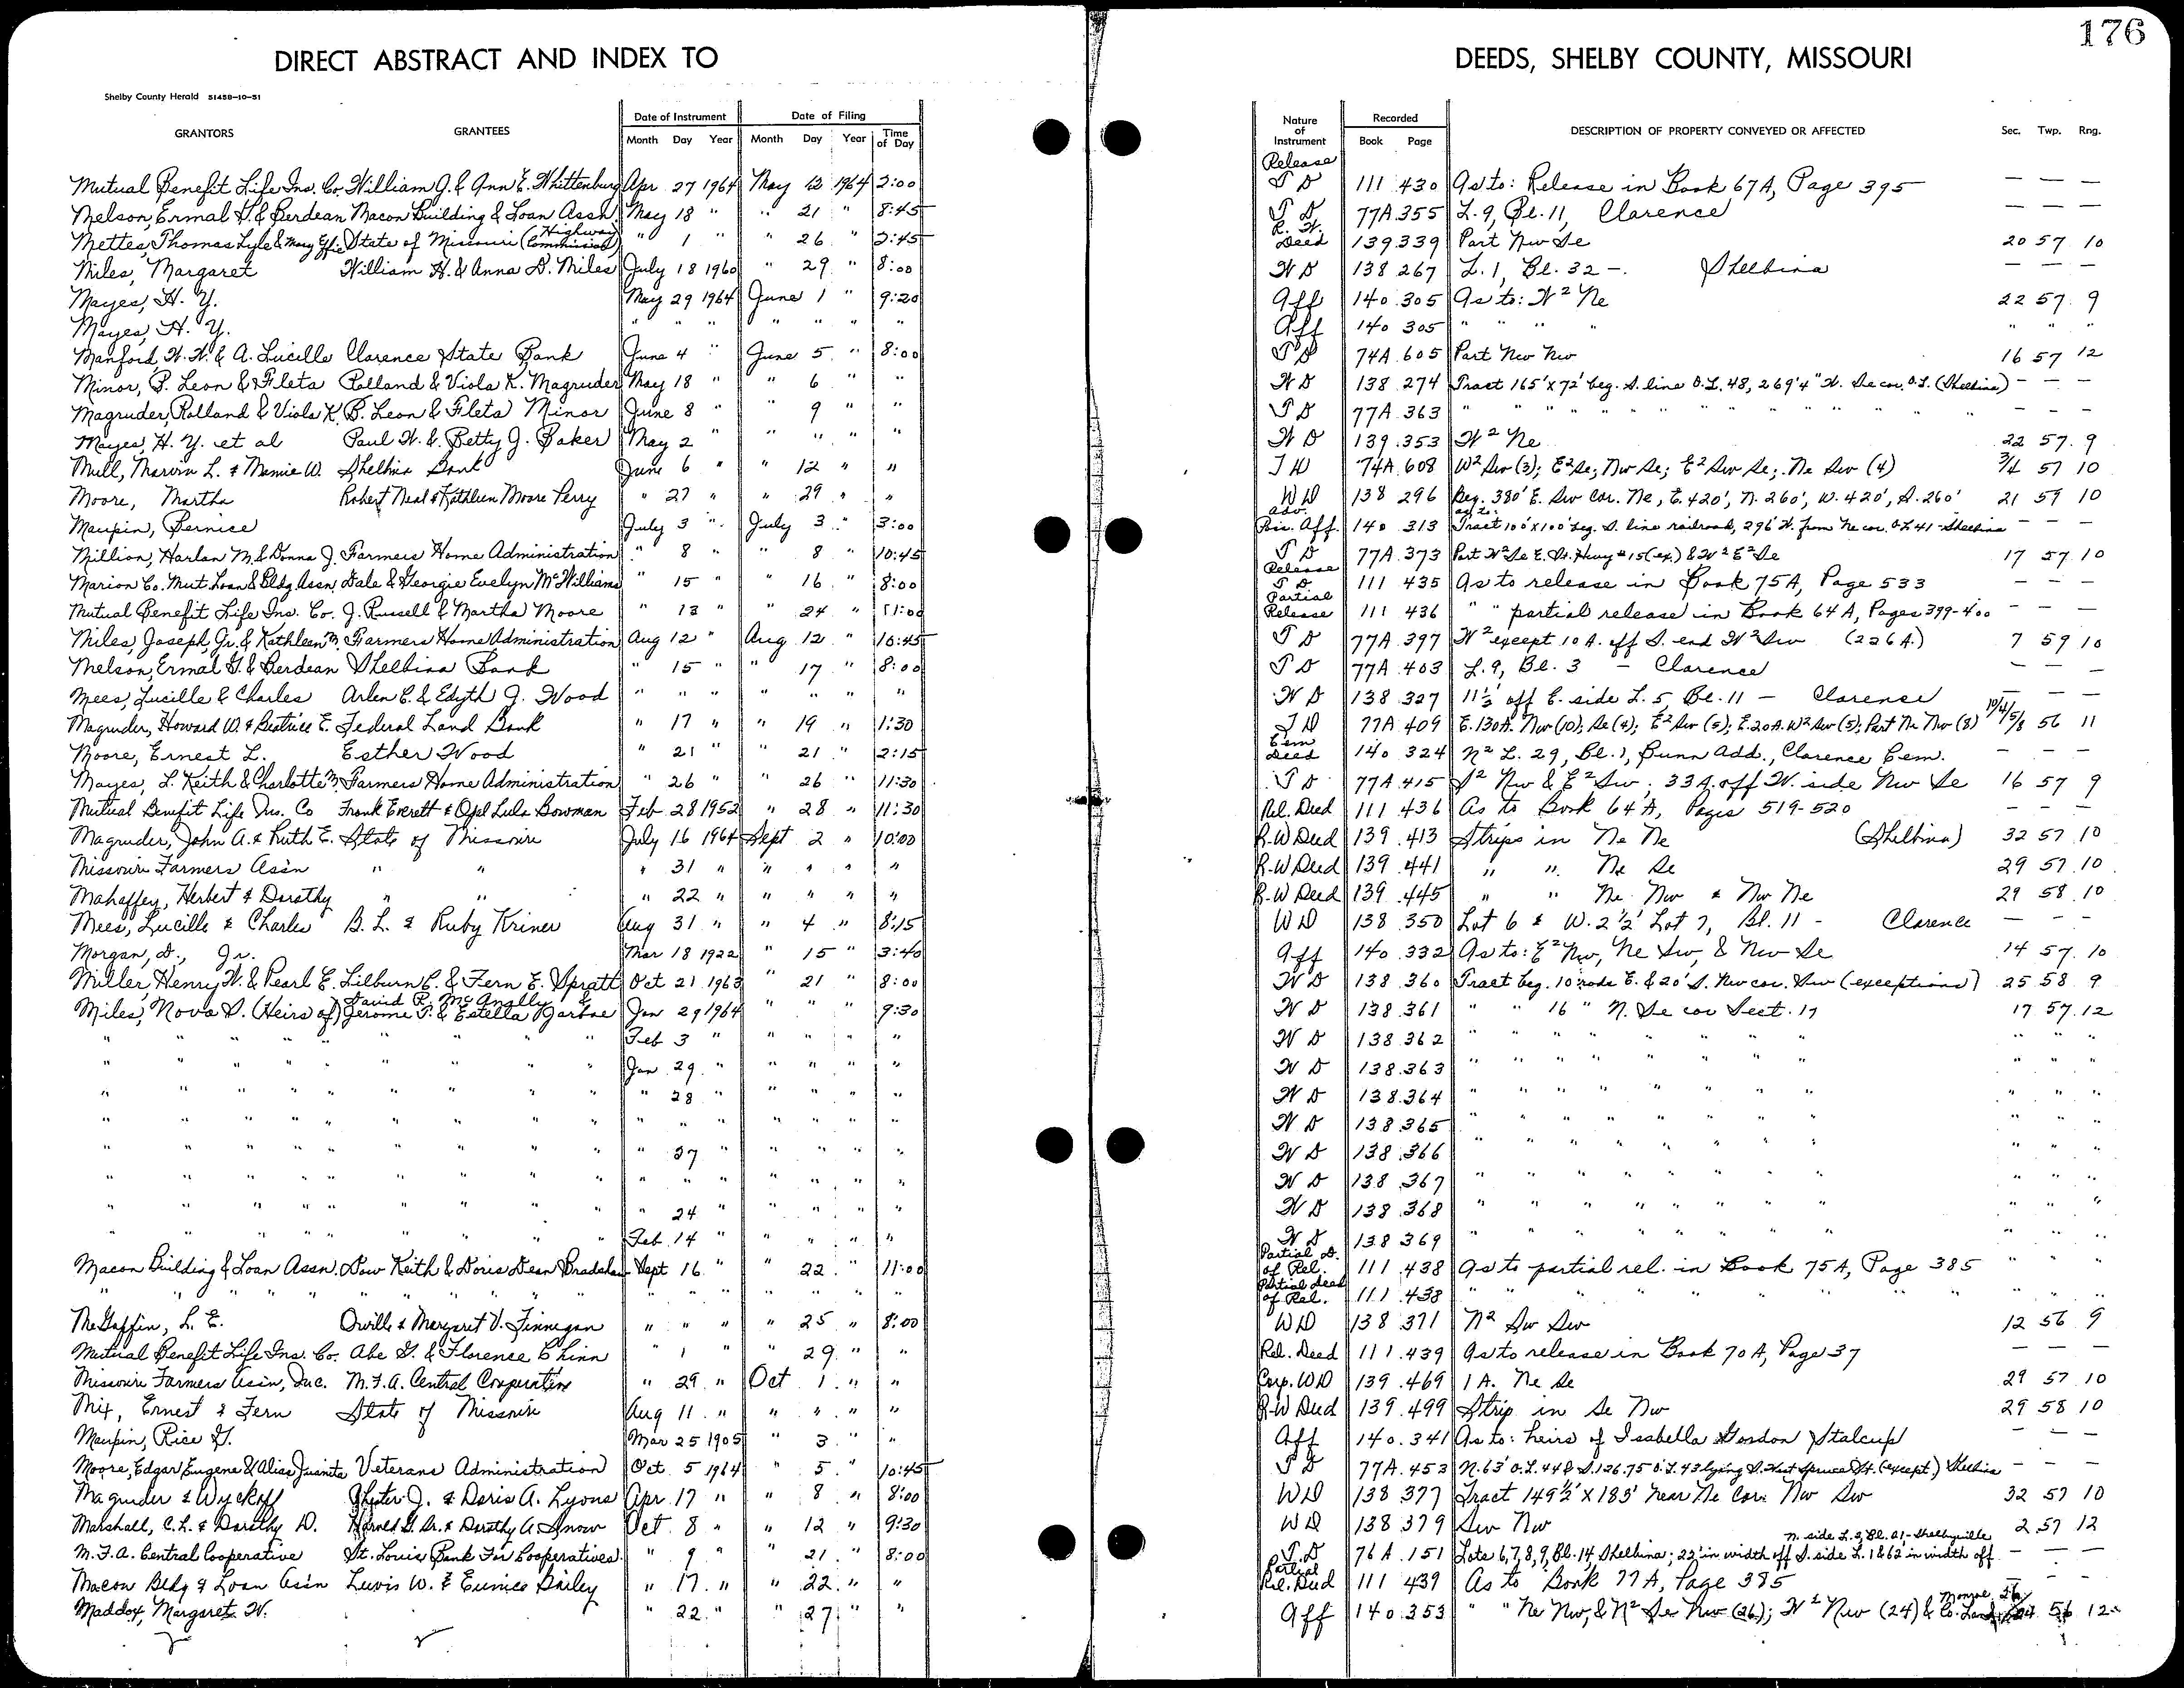 176
DIRECT ABSTRACT AND INDEX TO DEEDS, SHELBY COUNTY, MISSOURI
Shelby County Herald 51458-10-51
GRANTORS GRANTEES Date of Instrument Date of Filing Nature of Instrument Recorded DESCRIPTION OF PROPERTY CONVEYED OR AFFECTED Sec. Twp. Rng.
Month Day Year Month Day Year Time of Day Book Page
Mutual Benefit Life Ins. Co. William J. & Ann E. Whittenburg Apr 27 1964 May 12 1964 2:00 Release T D 111 430 As to: Release in Book 67A, Page 395 — — —
Nelson, Ermal G. & Berdean Macon Building & Loan Assn. May 18 " " 21 " 8:45 T D 77A 355 L. 9, Bl. 11, Clarence — — —
Mettes, Thomas Lyle & Mary Effie State of Missouri (Highway Commission) " 1 " " 26 " 2:45 R. W. Deed 139 339 Part Nw Se 20 57 10
Miles, Margaret William H. & Anna D. Miles July 18 1960 " 29 " 8:00 W D 138 267 L. 1, Bl. 32 -. Shelbina — — —
Mayes, H. Y. May 29 1964 June 1 " 9:20 Aff 140 305 As to: W² Ne 22 57 9
Mayes, H. Y. " " " " " " " Aff 140 305 " " " " " " "
Manford W. W. & A. Lucille Clarence State Bank June 4 " June 5 " 8:00 T D 74A 605 Part Nw Nw 16 57 12
Minor, B. Leon & Fleta Rolland & Viola K. Magruder May 18 " " 6 " " W D 138 274 Tract 165' x 72' beg. S. line O.L. 48, 269'4" W. Se cor. O.L. (Shelbina) — — —
Magruder, Rolland & Viola K. B. Leon & Fleta Minor June 8 " " 9 " " T D 77A 363 " " " " " " " " " " — — —
Mayes, H. Y. et al Paul W. & Betty J. Baker May 2 " " " " " W D 139 353 W² Ne 22 57 9
Mull, Marvin L. & Mamie W. Shelbina Bank June 6 " " 12 " " T D 74A 608 W² Sw (3); E² Se; Nw Se; E² Sw Se; Ne Sw (4) 3/4 57 10
Moore, Martha Robert Neal & Kathleen Moore Perry " 27 " " 29 " " W D 138 296 Beg. 380' E. Sw cor. Ne, E. 420', N. 260', W. 420', S. 260' 21 59 10
Maupin, Bernice July 3 " July 3 " 3:00 Adv. Poss. Aff. 140 313 as to: Tract 100' x 100' beg. S. line railroad, 296' W. from Ne cor. OL 41 - Shelbina — — —
Million, Harlan M. & Donna J. Farmers Home Administration " 8 " " 8 " 10:45 T D 77A 373 Part W² Se E. St. Hwy #15 (ex.) & W² E² Se 17 57 10
Marion Co. Mut. Loan & Bldg. Assn. Dale & Georgie Evelyn McWilliams " 15 " " 16 " 8:00 Release T D 111 435 As to release in Book 75A, Page 533 — — —
Mutual Benefit Life Ins. Co. J. Russell & Martha Moore " 13 " " 24 " 11:00 Partial Release 111 436 " " partial release in Book 64A, Pages 399-400 — — —
Miles, Joseph, Jr. & Kathleen M. Farmers Home Administration Aug 12 " Aug 12 " 10:45 T D 77A 397 W² except 10 A. off S. end W² Sw (226 A.) 7 59 10
Nelson, Ermal G. & Berdean Shelbina Bank " 15 " " 17 " 8:00 T D 77A 403 L. 9, Bl. 3 — Clarence — — —
Mees, Lucille & Charles Arlen C. & Edyth J. Wood " " " " " " " W D 138 327 11½' off E. side L. 5, Bl. 11 — Clarence — — —
Magruder, Howard W. & Beatrice E. Federal Land Bank " 17 " " 19 " 1:30 T D 77A 409 E. 130A. Nw (10), Se (4); E² Sw (5); E. 20A. W² Sw (5); Part Ne Nw (8) 56 11
Moore, Ernest L. Esther Wood " 21 " " 21 " 2:15 Cem Deed 140 324 N² L. 29, Bl. 1, Bunn Add., Clarence Cem. — — —
Mayes, L. Keith & Charlotte M. Farmers Home Administration " 26 " " 26 " 11:30 T D 77A 415 S² Nw & E² Sw; 33 A. off W. side Nw Se 16 57 9
Mutual Benefit Life Ins. Co Frank Everett & Opel Lula Bowman Feb 28 1952 " 28 " 11:30 Rel. Deed 111 436 As to Book 64A, Pages 519-520 — — —
Magruder, John A. & Ruth E. State of Missouri July 16 1964 Sept 2 " 10:00 R-W Deed 139 413 Strips in Ne Ne (Shelbina) 32 57 10
Missouri Farmers Assn " " " 31 " " " " " R-W Deed 139 441 " " Ne Se 29 57 10
Mahaffey, Herbert & Dorathy " " " 22 " " " " " R-W Deed 139 445 " " Ne Nw & Nw Ne 29 58 10
Mees, Lucille & Charles B. L. & Ruby Kriner Aug 31 " " 4 " 8:15 W D 138 350 Lot 6 & W. 2½' Lot 7, Bl. 11 - Clarence — — —
Morgan, D., Jr. Mar 18 1922 " 15 " 3:40 Aff 140 332 As to: E² Nw, Ne Sw, & Nw Se 14 57 10
Miller, Henry W. & Pearl E. Lilburn C. & Fern E. Spratt Oct 21 1963 " 21 " 8:00 W D 138 360 Tract beg. 10 rods E. & 20' S. Nw cor. Sw (exceptions) 25 58 9
Miles, Nova S. (Heirs of) David R. McAnally & Jerome T. & Estella Garbne Jan 29 1964 " " " 9:30 W D 138 361 " " 16 " N. Se cor Sect. 17 17 57 12
" " " " " " " " Feb 3 " " " " " W D 138 362 " " " " " " " " " "
" " " " " " " " Jan 29 " " " " " W D 138 363 " " " " " " " " " "
" " " " " " " " " 28 " " " " " W D 138 364 " " " " " " " " " "
" " " " " " " " " " " " " " " W D 138 365 " " " " " " " " " "
" " " " " " " " " 27 " " " " " W D 138 366 " " " " " " " " " "
" " " " " " " " " " " " " " " W D 138 367 " " " " " " " " " "
" " " " " " " " " 24 " " " " " W D 138 368 " " " " " " " " " "
" " " " " " " " Feb 14 " " " " " W D 138 369 " " " " " " " " " "
Macon Building & Loan Assn. Dow Keith & Doris Dean Bradshaw Sept 16 " " 22 " 11:00 Partial D. of Rel. 111 438 As to partial rel. in Book 75A, Page 385 " " "
" " " " " " " " " " " " " " " Partial Deed of Rel. 111 438 " " " " " " " " " "
McGaffin, L. E. Orville & Margaret V. Finnegan " " " " 25 " 8:00 W D 138 371 N² Sw Sw 12 56 9
Mutual Benefit Life Ins. Co. Abe G. & Florence Chinn " 1 " " 29 " " Rel. Deed 111 439 As to release in Book 70A, Page 37 — — —
Missouri Farmers Assn, Inc. M.F.A. Central Cooperative " 29 " Oct 1 " " Corp. WD 139 469 1 A. Ne Se 29 57 10
Mix, Ernest & Fern State of Missouri Aug 11 " " " " " R-W Deed 139 499 Strip in Se Nw 29 58 10
Maupin, Rice G. Mar 25 1905 " 3 " " Aff 140 341 As to: heirs of Isabella Gordon Stalcup — — —
Moore, Edgar Eugene & Alias Juanita Veterans Administration Oct 5 1964 " 5 " 10:45 T D 77A 453 N. 63' O.L. 44 & S. 126.75 O.L. 43 lying S. West Spruce St. (except) Shelbina — — —
Magruder & Wyckoff J. & Doris A. Lyons Apr 17 " " 8 " 8:00 W D 138 377 Tract 149½' x 183' near Ne Cor. Nw Sw 32 57 10
Marshall, C. L. & Dorathy D. Harold G. Sr. & Dorathy A Snow Oct. 8 " " 12 " 9:30 W D 138 379 Sw Nw 2 57 12
M.F.A. Central Cooperative St. Louis Bank For Cooperatives " 9 " " 21 " 8:00 T. D 76A 151 Lots 6, 7, 8, 9, Bl. 14, Shelbina; 22' in width off S. side L. 1 & 62' in width off N. side L. 2, Bl. 21 - Shelbyville — — —
Macon Bldg & Loan Assn Luvis W. & Eunice Bailey " 17 " " 22 " " Partial Rel. Deed 111 439 As to Book 77A, Page 385 — — —
Maddox, Margaret W. " 22 " " 27 " " Aff 140 353 " " Ne Nw, & N² Se Nw (26); W² Nw (24) & Monroe Co. Land 56 12